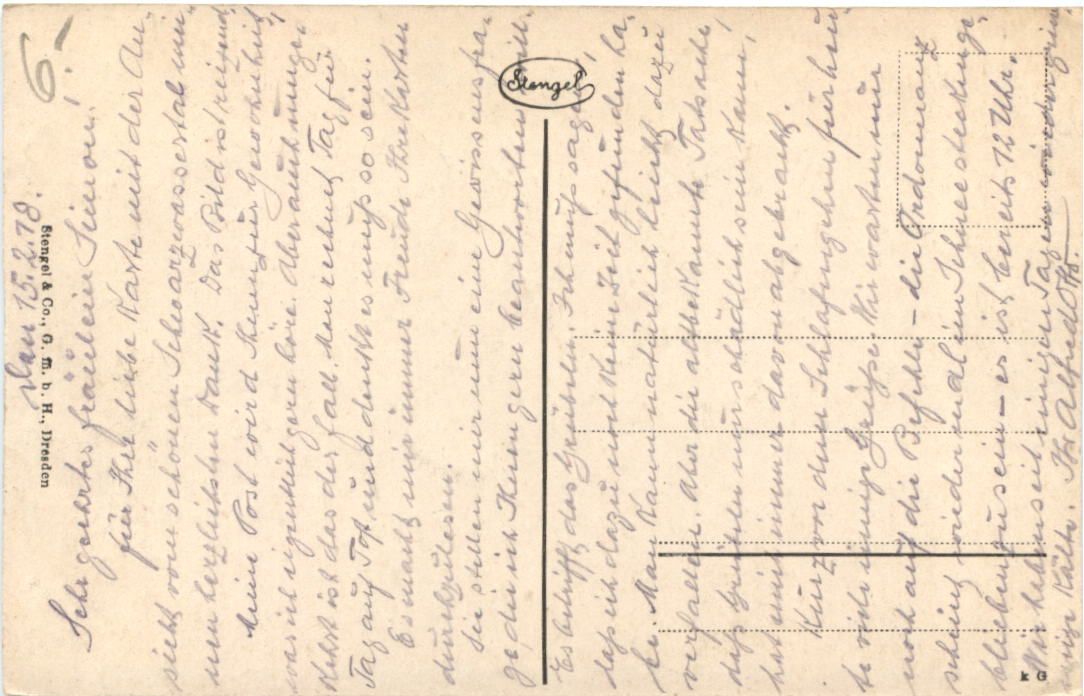 6.-
Den 15.2.18.
Sehr geehrtes Fräulein Simoni!
für Ihre liebe Karte mit der An-
sicht vom schönen Schwarzwassertal mei-
nen herzlichsten Dank. Das Bild ist reizend,
Meine Post wird Ihnen zur Gewohnheit,
was ich eigentlich gern höre.
kehrt ist das der Fall. Man rechnet Tag für
Tag auf Post und denkt es muß so sein.
Es macht mir immer Freude Ihre Karten
durchzulesen.
Sie stellen mir nun eine Gewissensfra-
ge die ich Ihnen gern beantworten will.
Es betrifft das Grübeln. Ich muß sagen,
daß ich dazu noch keine Zeit gefunden ha-
be. Man kann natürlich leicht dazu
verfallen. Aber die altbekannte Tatsache
daß Grübeln nur schädlich sein kann,
hat mich immer davon abgebracht.
Kurz vor dem Schlafengehen für heu-
te viele innige Grüße. Wir warten nur
noch auf die Befehle - die
scheint wieder mal im Schnee stecken ge-
blieben zu sein - es ist bereits 12 Uhr.
Wir haben seit einigen Tagen
Kälte. Ihr Alfred
Stengel
Stengel & Co., G. m. b. H., Dresden
k G